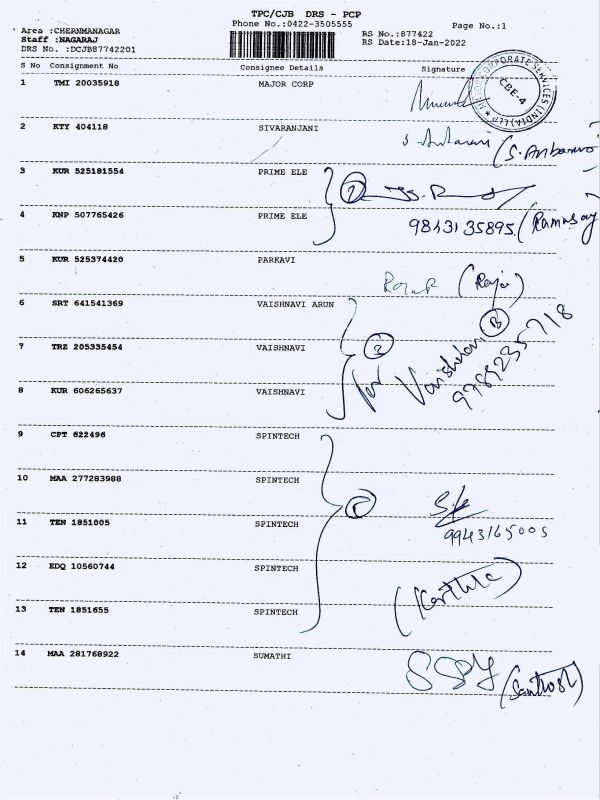 TPC/CJB DRS - PCP
Phone No.:0422-3505555
Page No.:1
Area :CHERNMANAGAR
Staff :NAGARAJ
DRS No. :DCJB87742201
RS No.:877422
RS Date:18-Jan-2022
S No Consignment No Consignee Details Signature
1 TMI 20035918 MAJOR CORP
CBE-4
2 KTY 404118 SIVARANJANI
3 KUR 525181554 PRIME ELE
4 KNP 507765426 PRIME ELE
9843135895
5 KUR 525374420 PARKAVI
(Raja)
6 SRT 641541369 VAISHNAVI ARUN
7 TRZ 205335454 VAISHNAVI
3
Vaishnavi B
9789235718
8 KUR 606265637 VAISHNAVI
9 CPT 622496 SPINTECH
10 MAA 277283988 SPINTECH
11 TEN 1851005 SPINTECH
9943165005
12 EDQ 10560744 SPINTECH
13 TEN 1851655 SPINTECH
14 MAA 281768922 SUMATHI
(Santhosh)